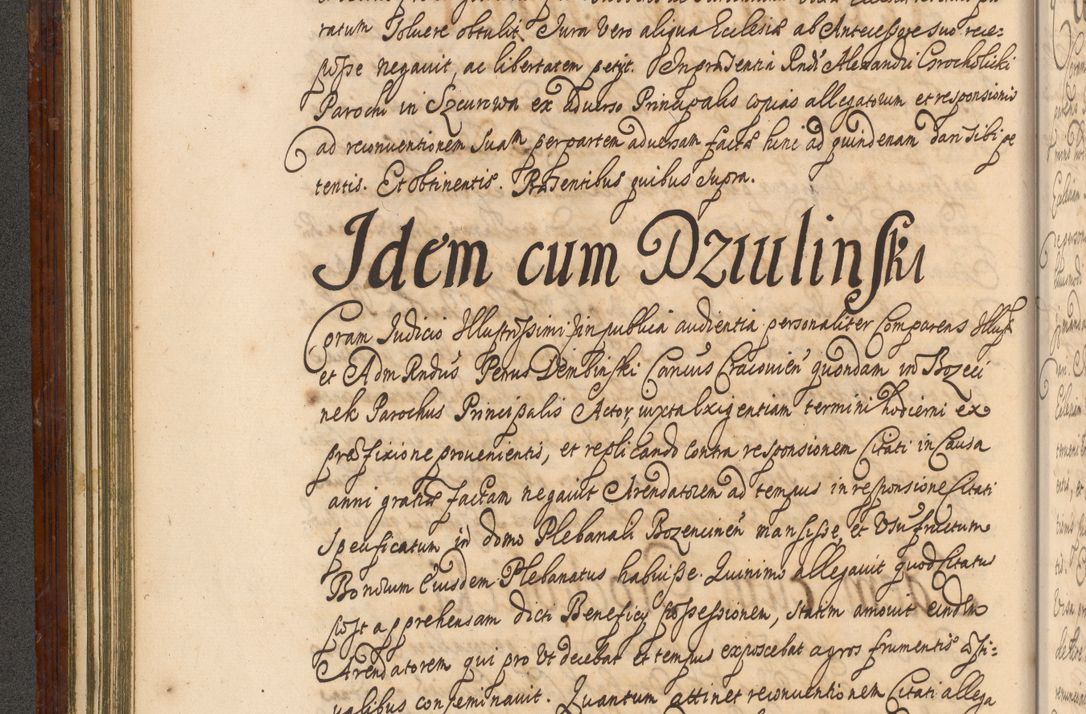 ratum solvere obtulit Jura vero aliqua Ecclesiæ ab Antecessore suo rece-
pisse negavit, ac libertatem petyt. In præsentia Rndi Alexandri Grocholicki
Parochi in Szcurowa ex adverso Principalis copias allegatorum et responsionis
ad reconventionem suam per partem adversam factæ hinc ad quindenam dari sibi pe
tentis. Et obtinentis. Præsentibus quibus supra.
Idem cum Dziulinski
Coram Judicio Illustrissimi in publica audientia personaliter Comparens Illust
et Adm Rndus Petrus Dembinski Cancus Cracovien quondam in Bozeci
nek Parochus Principalis Actor, iuxta exigentiam termini hodierni ex
præfixione provenientis, et replicando contra responsionem Citati in Causa
anni gratiæ factam negavit Arendatorem ad tempus in responsione Citati
specificatum in domo Plebanali Bozencinen mansisse, et Usufructum
Bonorum Eiusdem Plebanatus habuisse. Quinimo allegavit quod Citatus
post apprehensam dicti Beneficy possessionem, statim amovit eundem
Arendatorem qui pro ut decebat et tempus exposcebat agros frumentis æsti-
valibus conseminavit. Quantum attinet reconventionem Citati allega